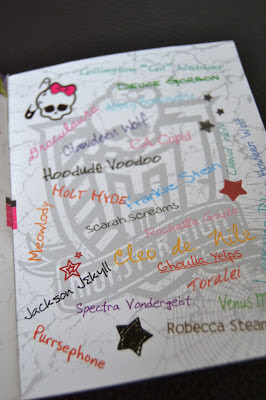 Gillington "Gil" Webber
Deuce Gorgon
Draculaura
Abbey Bominable
Clawdeen Wolf
C.A. Cupid
Howleen Wolf
Hoodude Voodoo
Holt Hyde
Frankie Stein
Scarah Screams
Meowlody
Rochelle Goyle
Cleo de Nile
Ghoulia Yelps
Jackson Jekyll
Toralei
Spectra Vondergeist
Venus M
Purrsephone
Robecca Steam